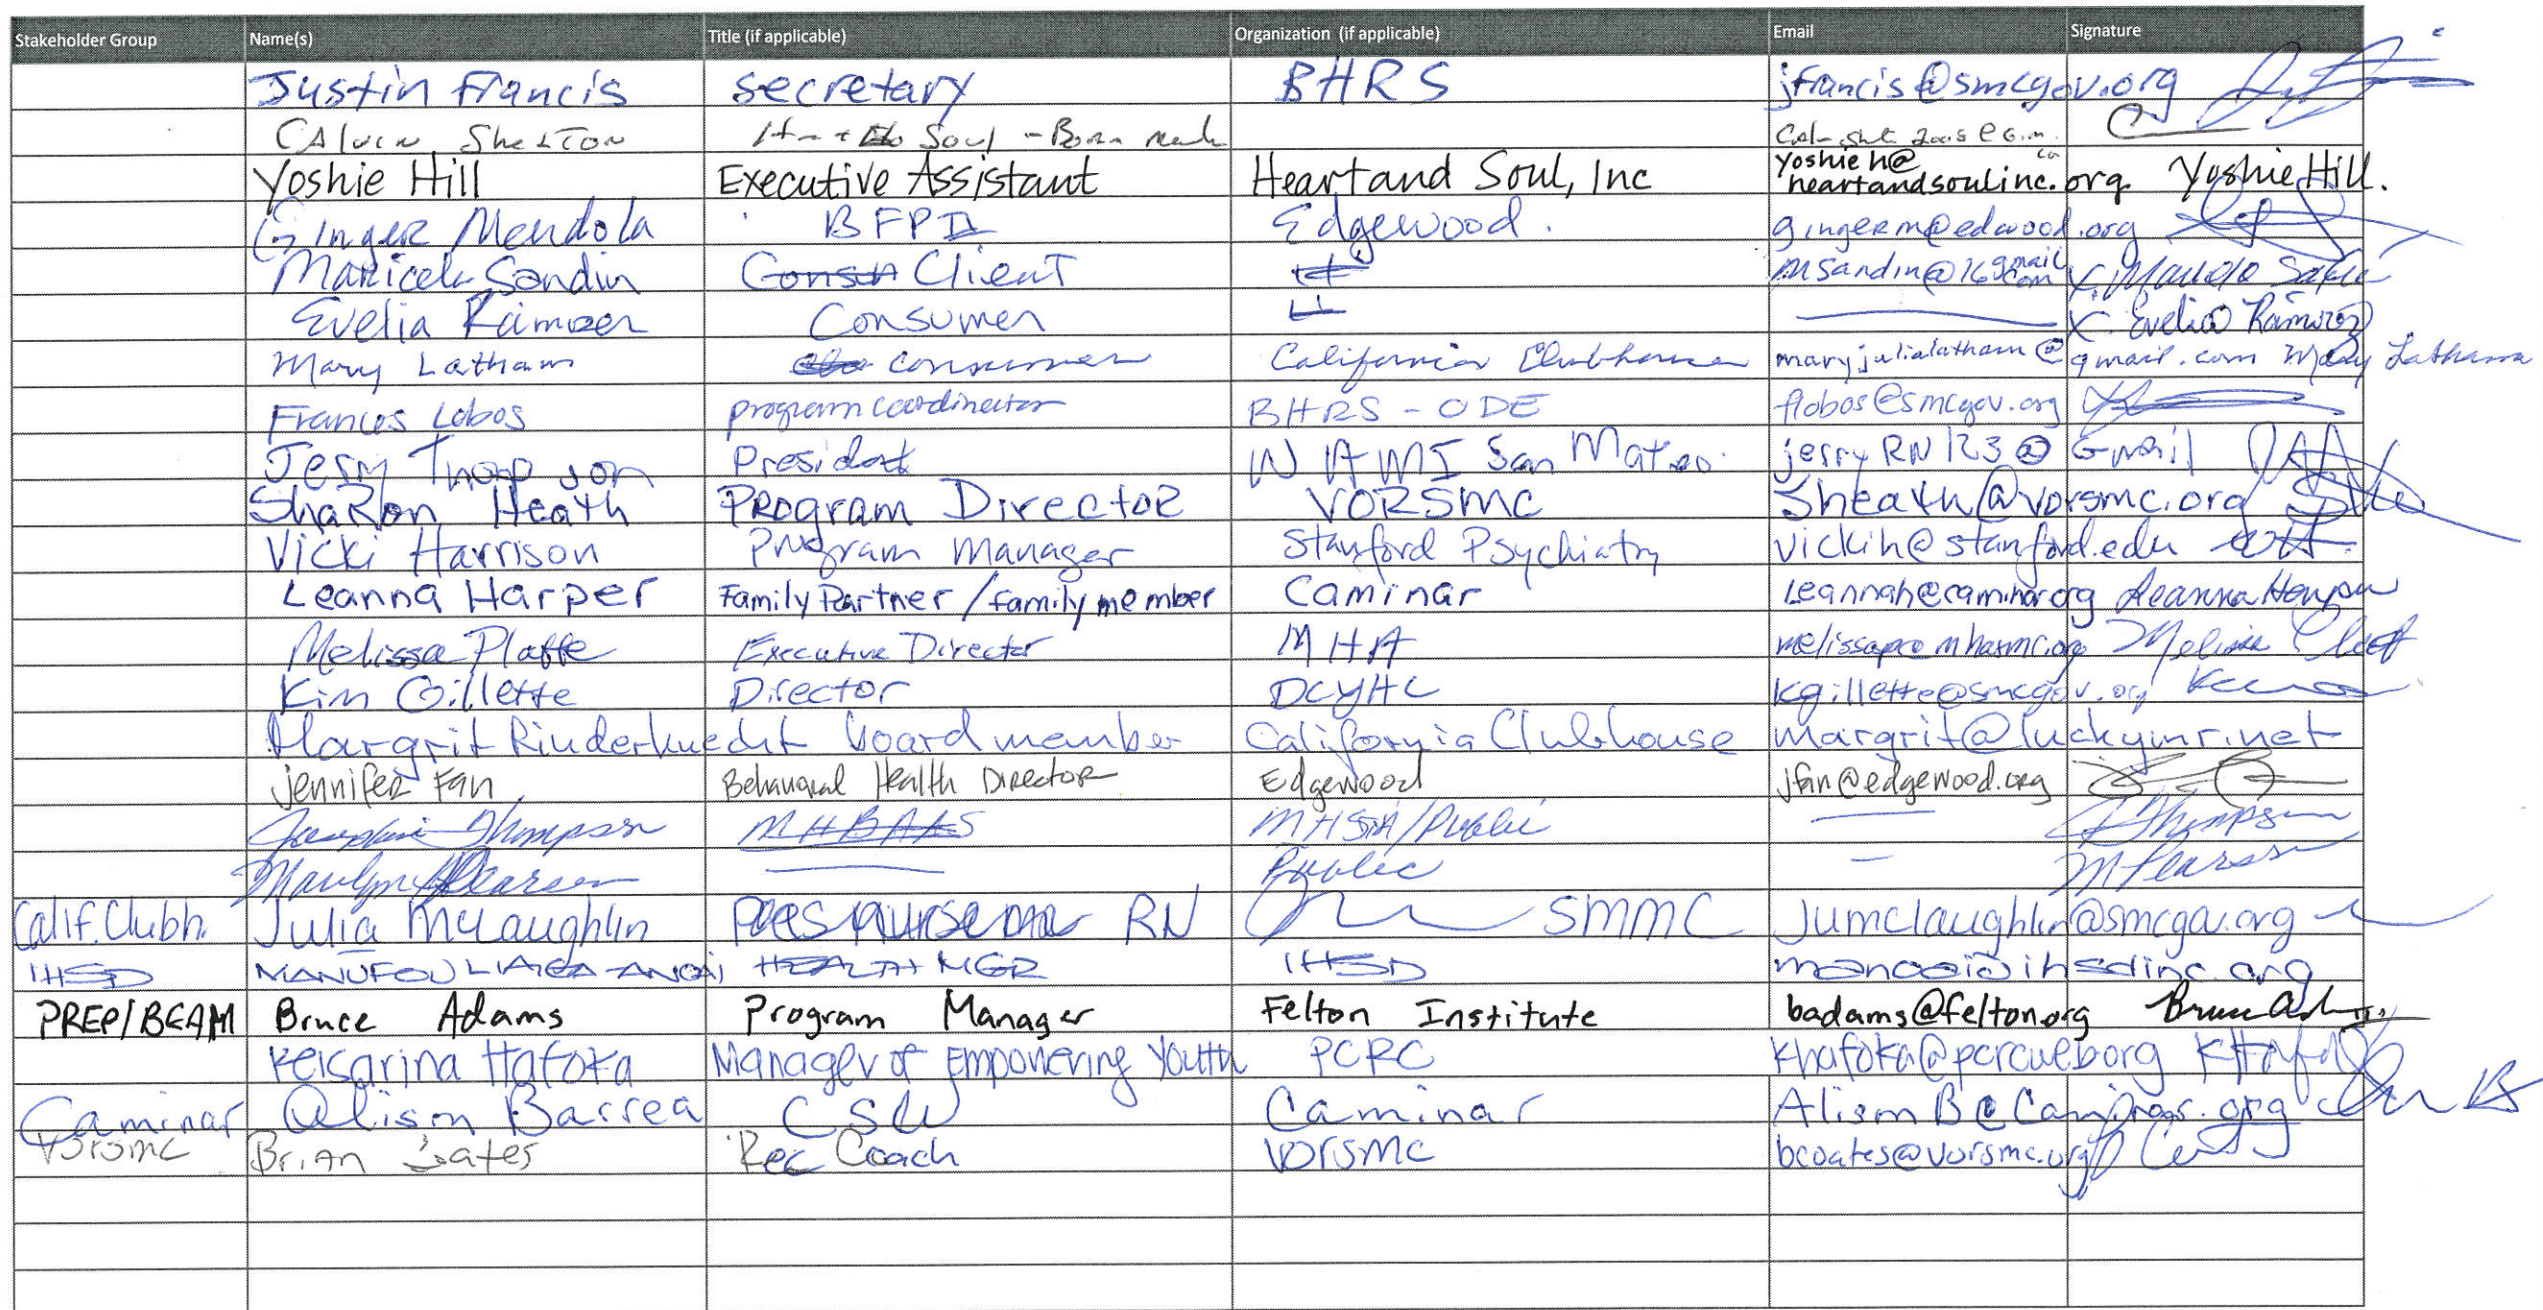 Stakeholder Group Name(s) Title (if applicable) Organization (if applicable) Email Signature
Justin Francis secretary BHRS jfrancis@smcgov.org
Calvin Shelton Soul - Board
Yoshie Hill Executive Assistant Heart and Soul, Inc yoshieh@heartandsoulinc.org Yoshie Hill.
Ginger Mendola BFPD Edgewood. gingerm@edwood.org
Maricela Sandin Client msandin@16gmail.com
Evelia Ramirez Consumer X. Evelia Ramirez
Mary Latham consumer California Clubhouse maryjulialatham@gmail.com Mary Latham
Frances Lobos program coordinator BHRS - ODE flobos@smcgov.org
Jerry Thompson President NAMI San Mateo. jerryRN123@Gmail
Sharon Heath Program Director VORSMC Sheath@vorsmc.org
Vicki Harrison Program Manager Stanford Psychiatry vickih@stanford.edu
Leanna Harper Family Partner/family member Caminar Leannah@caminar.org Leanna Harper
Melissa Platte Executive Director MHA melissap@mhasmc.org Melissa Platte
Kim Gillette Director DCYHC kgillette@smcgov.org
Margrit Rinderknecht board member California Clubhouse margrit@luckymri.net
Jennifer Fan Behavioral Health Director Edgewood jfan@edgewood.org
Josephine Thompson MHSA/Public JThompson
Marilyn Pearson Public M Pearson
Calif. Clubh. Julia McLaughlin RN SMMC Jumclaughlin@smcgov.org
IHSD HEALTH MGR IHSD manoai@ihsdinc.org
PREP/BEAM Bruce Adams Program Manager Felton Institute badams@felton.org Bruce Adams
Keisarina Hafoka Manager of Empowering Youth PCRC khafoka@pcrcweb.org KHafoka
Caminar Alison Barrea CSW Caminar
Vorsmc Brian Coates Rec Coach VORSMC bcoates@vorsmc.org